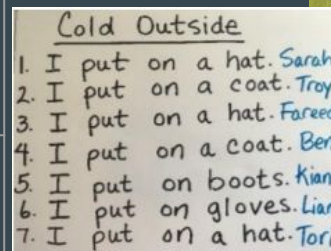 Cold Outside
1. I put on a hat. Sarah
2. I put on a coat. Troy
3. I put on a hat. Fareed
4. I put on a coat. Ben
5. I put on boots. Kian
6. I put on gloves. Liam
7. I put on a hat. Tor